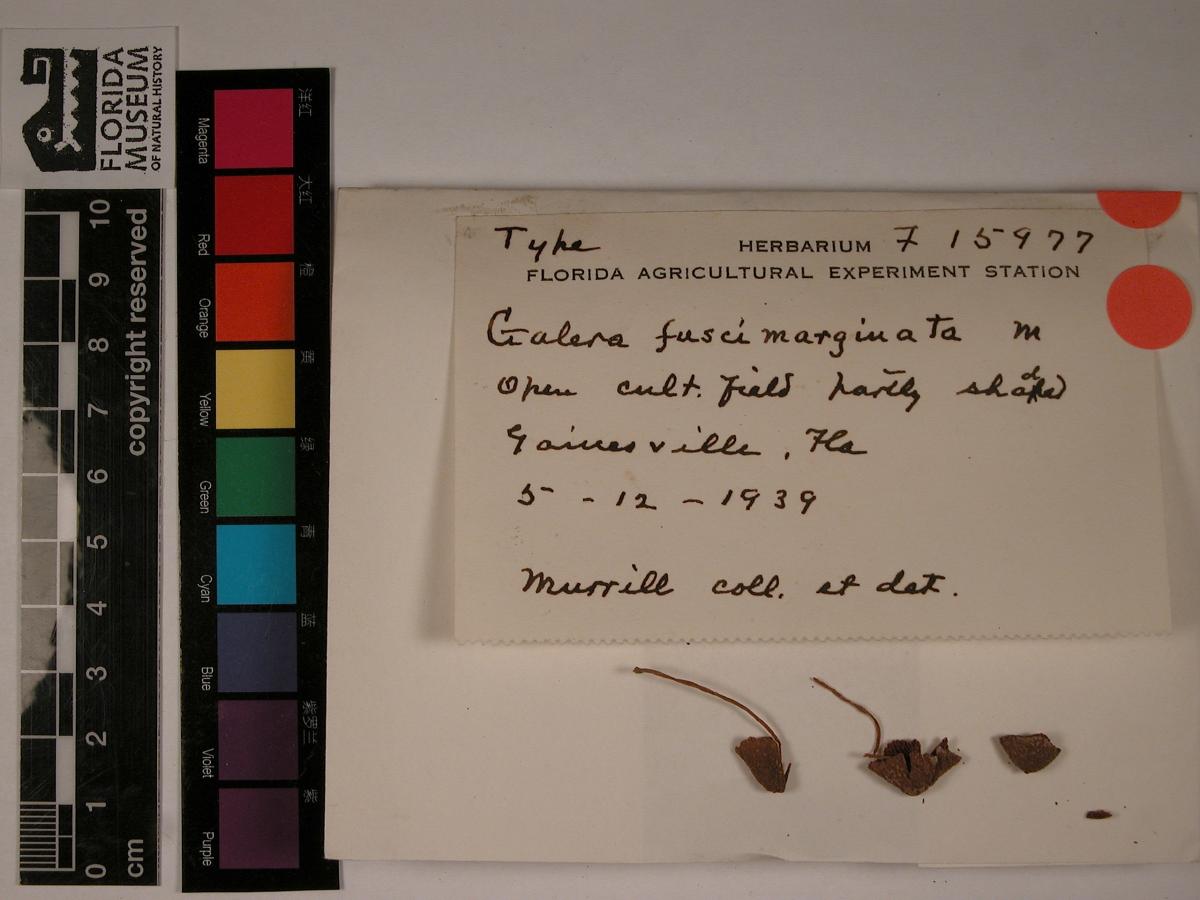 FLORIDA
MUSEUM
OF NATURAL HISTORY
copyright reserved
10
9
8
7
6
5
4
3
2
1
0
cm
Magenta 洋红
Red 大红
Orange 橙
Yellow 黄
Green 绿
Cyan 青
Blue 蓝
Violet 紫罗兰
Purple 紫
Type HERBARIUM F 15977
FLORIDA AGRICULTURAL EXPERIMENT STATION
Galera fuscimarginata M
Open cult. field partly shaded
Gainesville, Fla
5-12-1939
Murrill coll. et det.